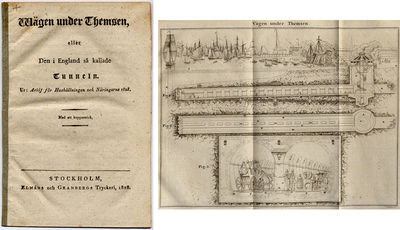 Wägen under Themsen,
eller
Den i England så kallade
Tunneln.
Ur: Arkif för Hushållningen och Näringarne 1828.
Med ett kopparstick.
STOCKHOLM,
ELMÉNS och GRANBERGS Tryckeri, 1828.
Vägen under Themsen.